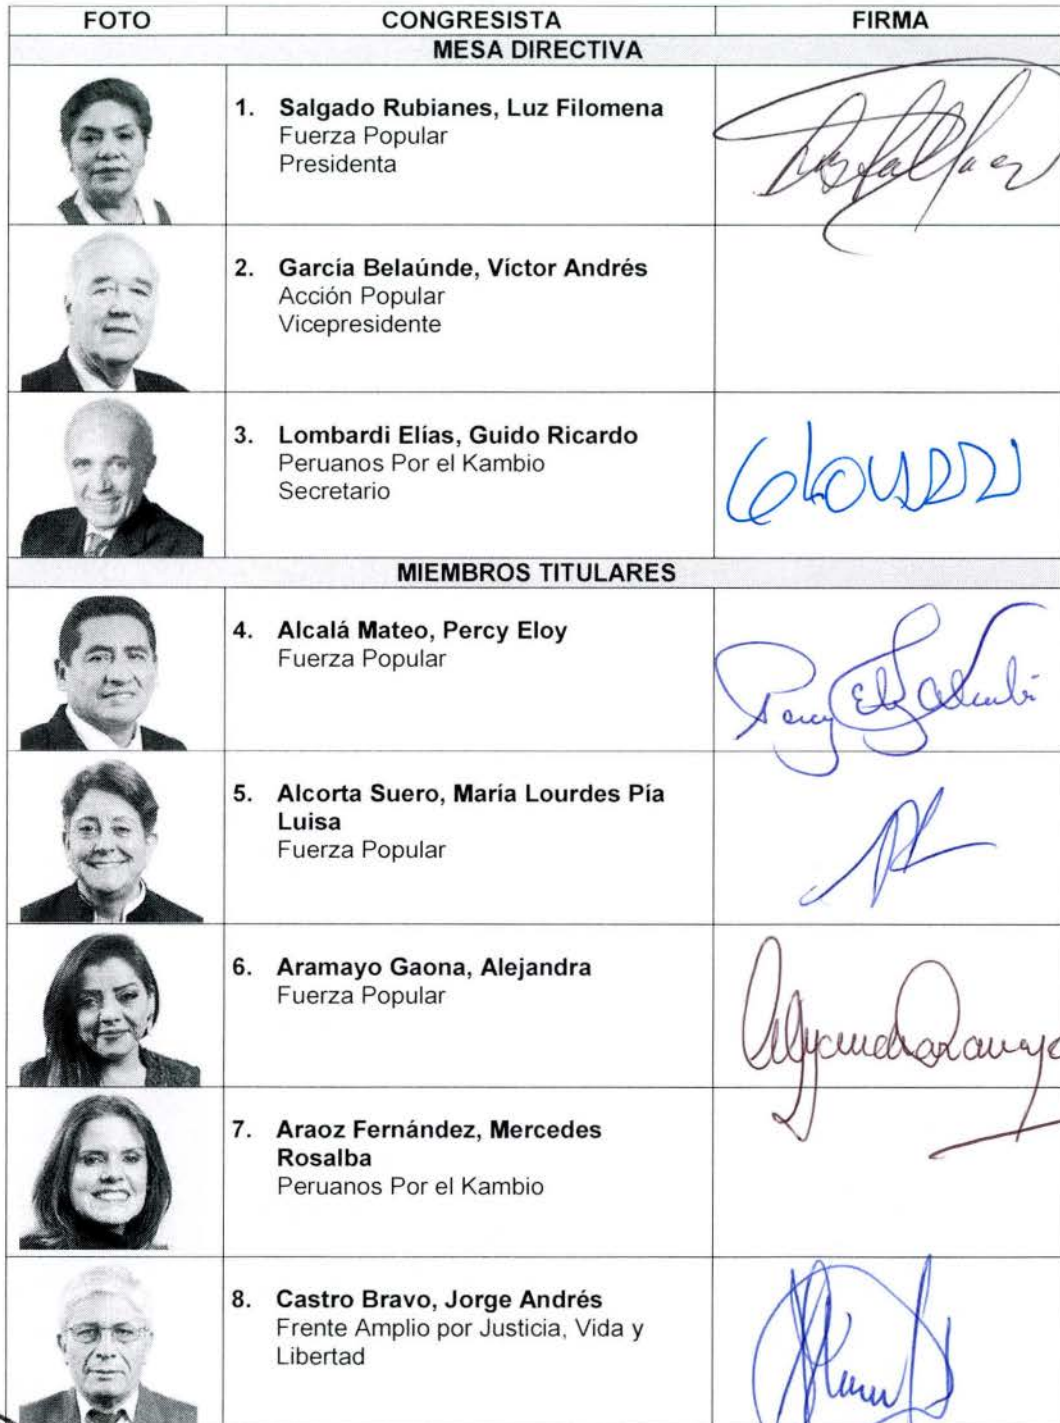 FOTO CONGRESISTA FIRMA
MESA DIRECTIVA
1. Salgado Rubianes, Luz Filomena
Fuerza Popular
Presidenta
2. García Belaúnde, Víctor Andrés
Acción Popular
Vicepresidente
3. Lombardi Elías, Guido Ricardo
Peruanos Por el Kambio
Secretario
MIEMBROS TITULARES
4. Alcalá Mateo, Percy Eloy
Fuerza Popular
5. Alcorta Suero, María Lourdes Pía
Luisa
Fuerza Popular
6. Aramayo Gaona, Alejandra
Fuerza Popular
7. Araoz Fernández, Mercedes
Rosalba
Peruanos Por el Kambio
8. Castro Bravo, Jorge Andrés
Frente Amplio por Justicia, Vida y
Libertad